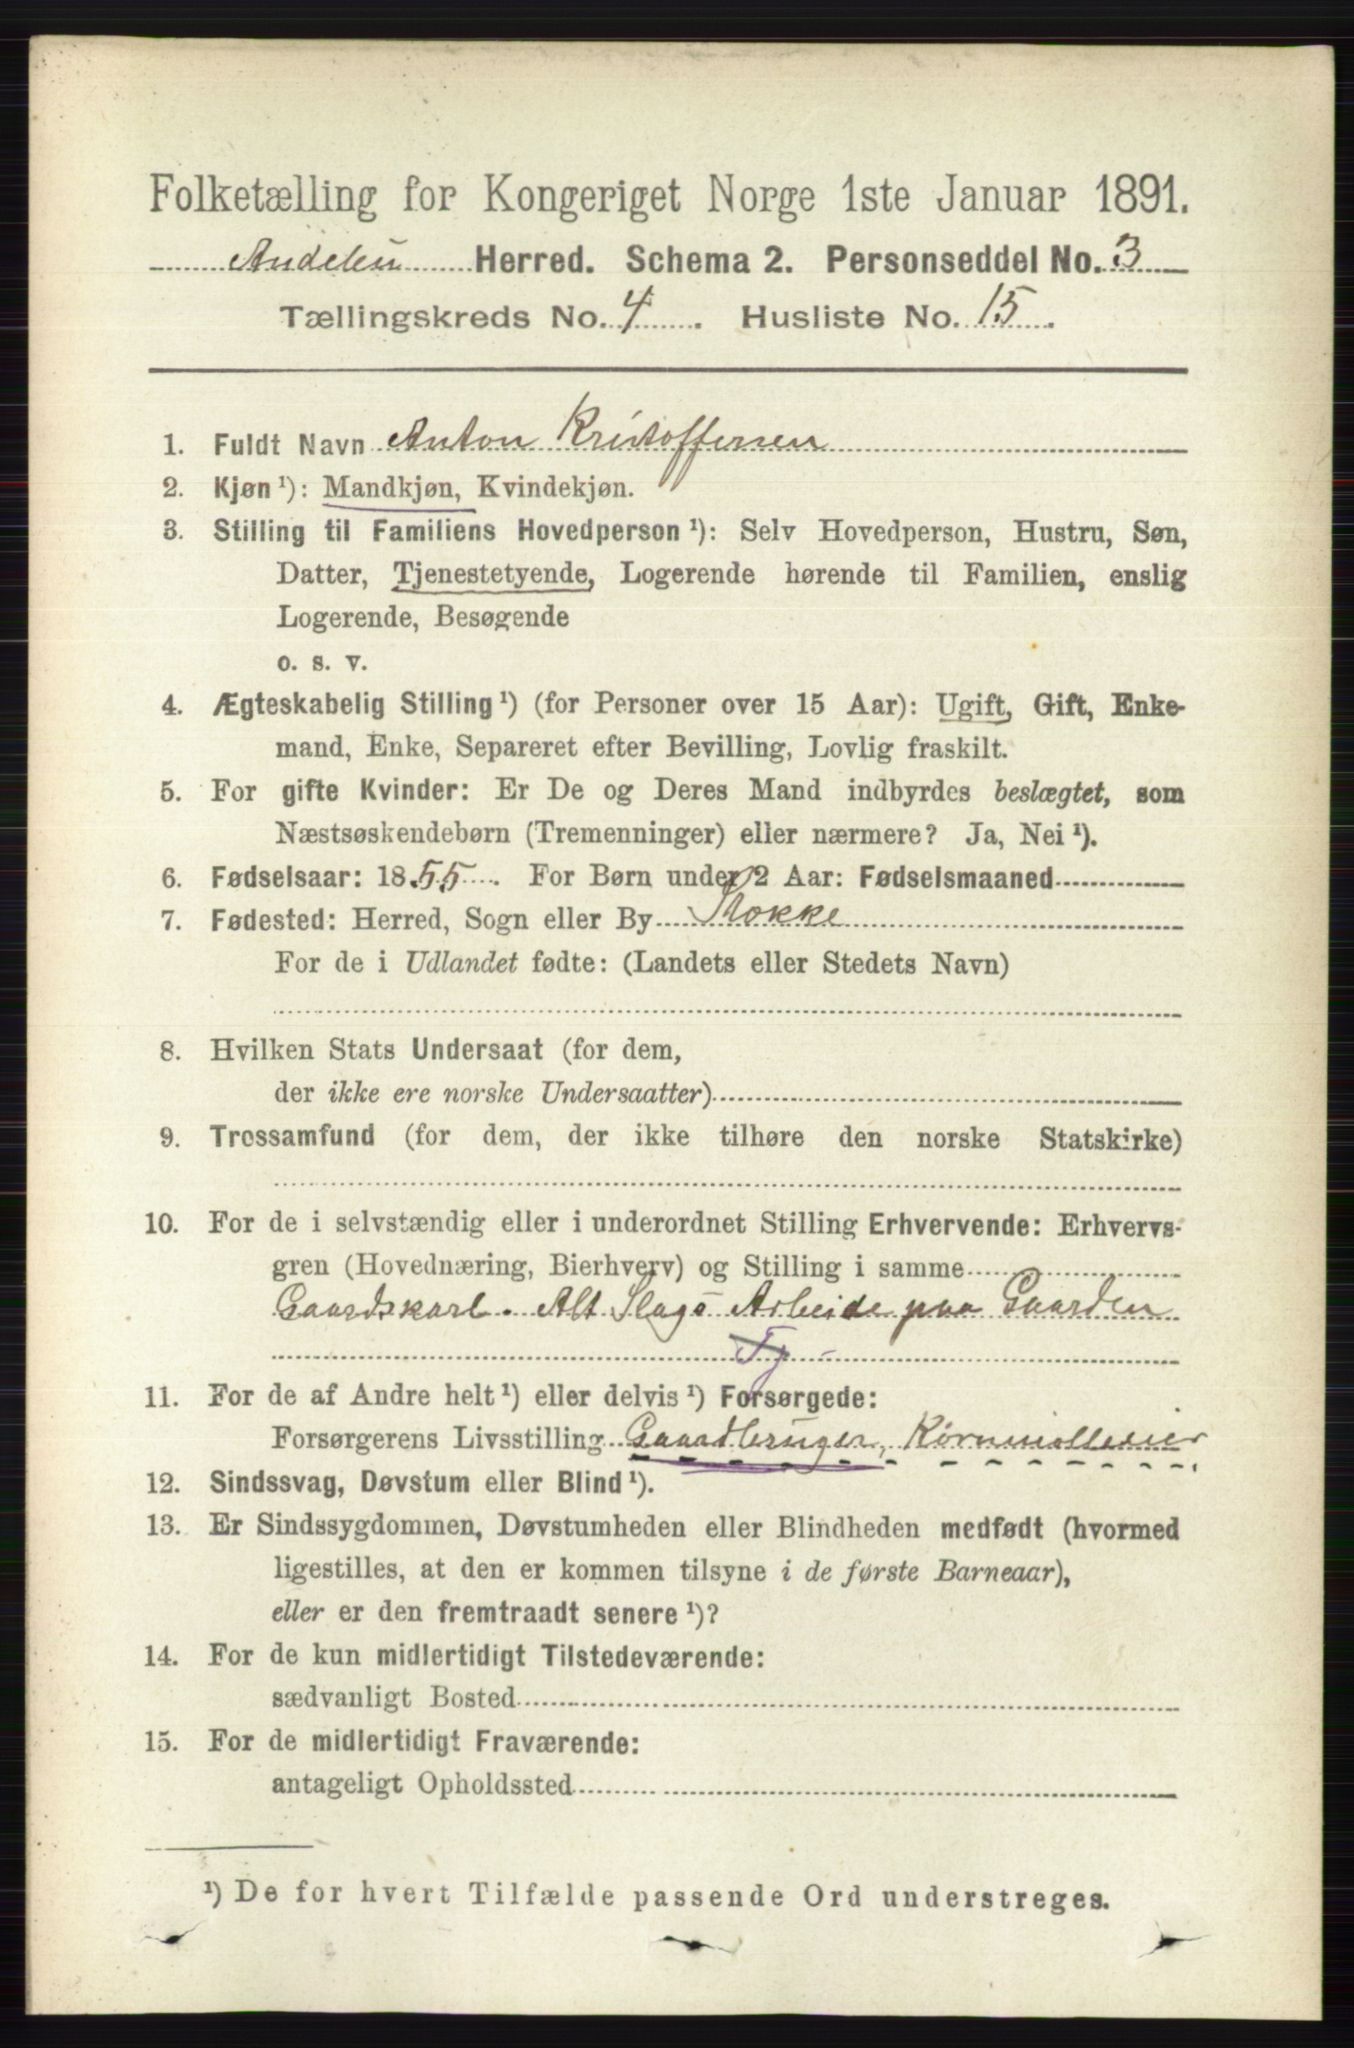 Folketælling for Kongeriget Norge 1ste Januar 1891.
Andebu Herred. Schema 2. Personseddel No. 3
Tællingskreds No. 4. Husliste No. 15.
1. Fuldt Navn Anton Kristoffersen
2. Kjøn ¹): Mandkjøn, Kvindekjøn.
3. Stilling til Familiens Hovedperson ¹): Selv Hovedperson, Hustru, Søn,
Datter, Tjenestetyende, Logerende hørende til Familien, enslig
Logerende, Besøgende
o. s. v.
4. Ægteskabelig Stilling ¹) (for Personer over 15 Aar): Ugift, Gift, Enke-
mand, Enke, Separeret efter Bevilling, Lovlig fraskilt.
5. For gifte Kvinder: Er De og Deres Mand indbyrdes beslægtet, som
Næstsøskendebørn (Tremenninger) eller nærmere? Ja, Nei ¹).
6. Fødselsaar: 1855. For Børn under 2 Aar: Fødselsmaaned
7. Fødested: Herred, Sogn eller By Stokke
For de i Udlandet fødte: (Landets eller Stedets Navn)
8. Hvilken Stats Undersaat (for dem,
der ikke ere norske Undersaatter)
9. Trossamfund (for dem, der ikke tilhøre den norske Statskirke)
10. For de i selvstændig eller i underordnet Stilling Erhvervende: Erhvervs-
gren (Hovednæring, Bierhverv) og Stilling i samme
Gaardskarl. Alt Slags Arbeide paa Gaarden
Tj -
11. For de af Andre helt ¹) eller delvis ¹) Forsørgede:
Forsørgerens Livsstilling Gaardbruger, Kornmølleeier
12. Sindssvag, Døvstum eller Blind ¹).
13. Er Sindssygdommen, Døvstumheden eller Blindheden medfødt (hvormed
ligestilles, at den er kommen tilsyne i de første Barneaar),
eller er den fremtraadt senere ¹)?
14. For de kun midlertidigt Tilstedeværende:
sædvanligt Bosted
15. For de midlertidigt Fraværende:
antageligt Opholdssted
¹) De for hvert Tilfælde passende Ord understreges.